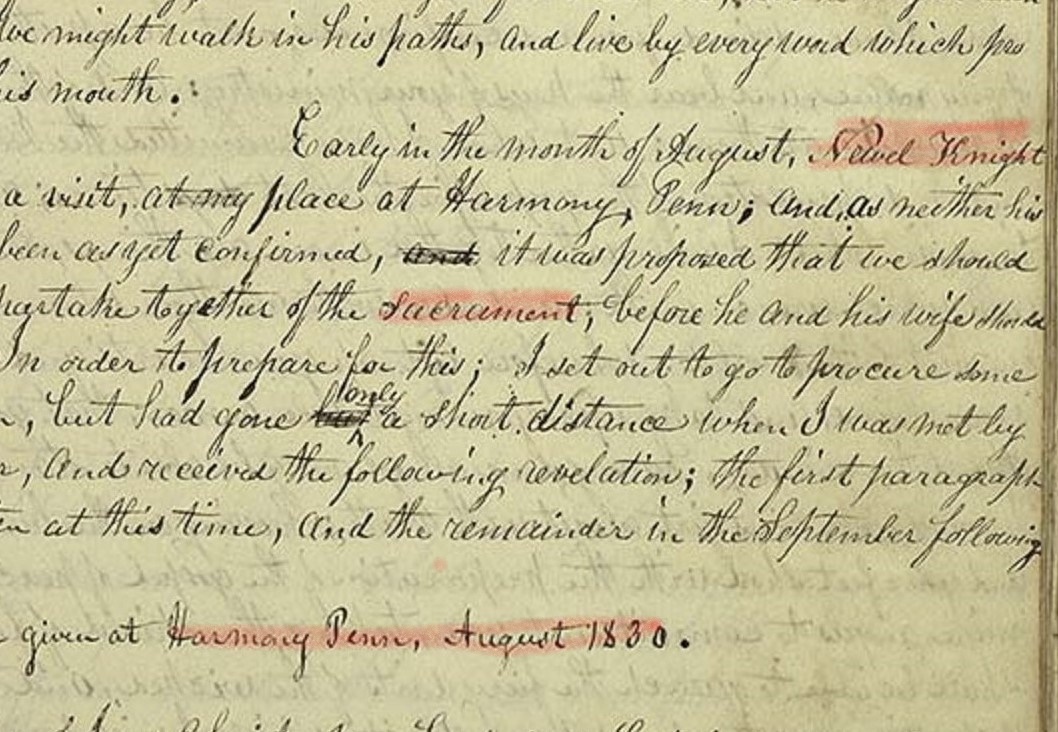 we might walk in his paths, and live by every word which pro
his mouth.
Early in the month of August, Newel Knight
a visit, at my place at Harmony, Penn; and, as neither his
been as yet confirmed, and it was proposed that we should
partake together of the sacrament, before he and his wife should
In order to prepare for this; I set out to go to procure some
, but had gone only a short distance when I was met by
, and received the following revelation; the first paragraph
at this time, and the remainder in the September following
given at Harmony Penn, August 1830.